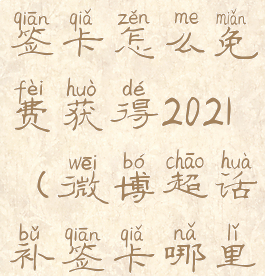 qiān qiǎ zěn me miǎn
签卡怎么免
fèi huò dé
费获得2021
wēi bó chāo huà
(微博超话
bǔ qiān qiǎ nǎ lǐ
补签卡哪里